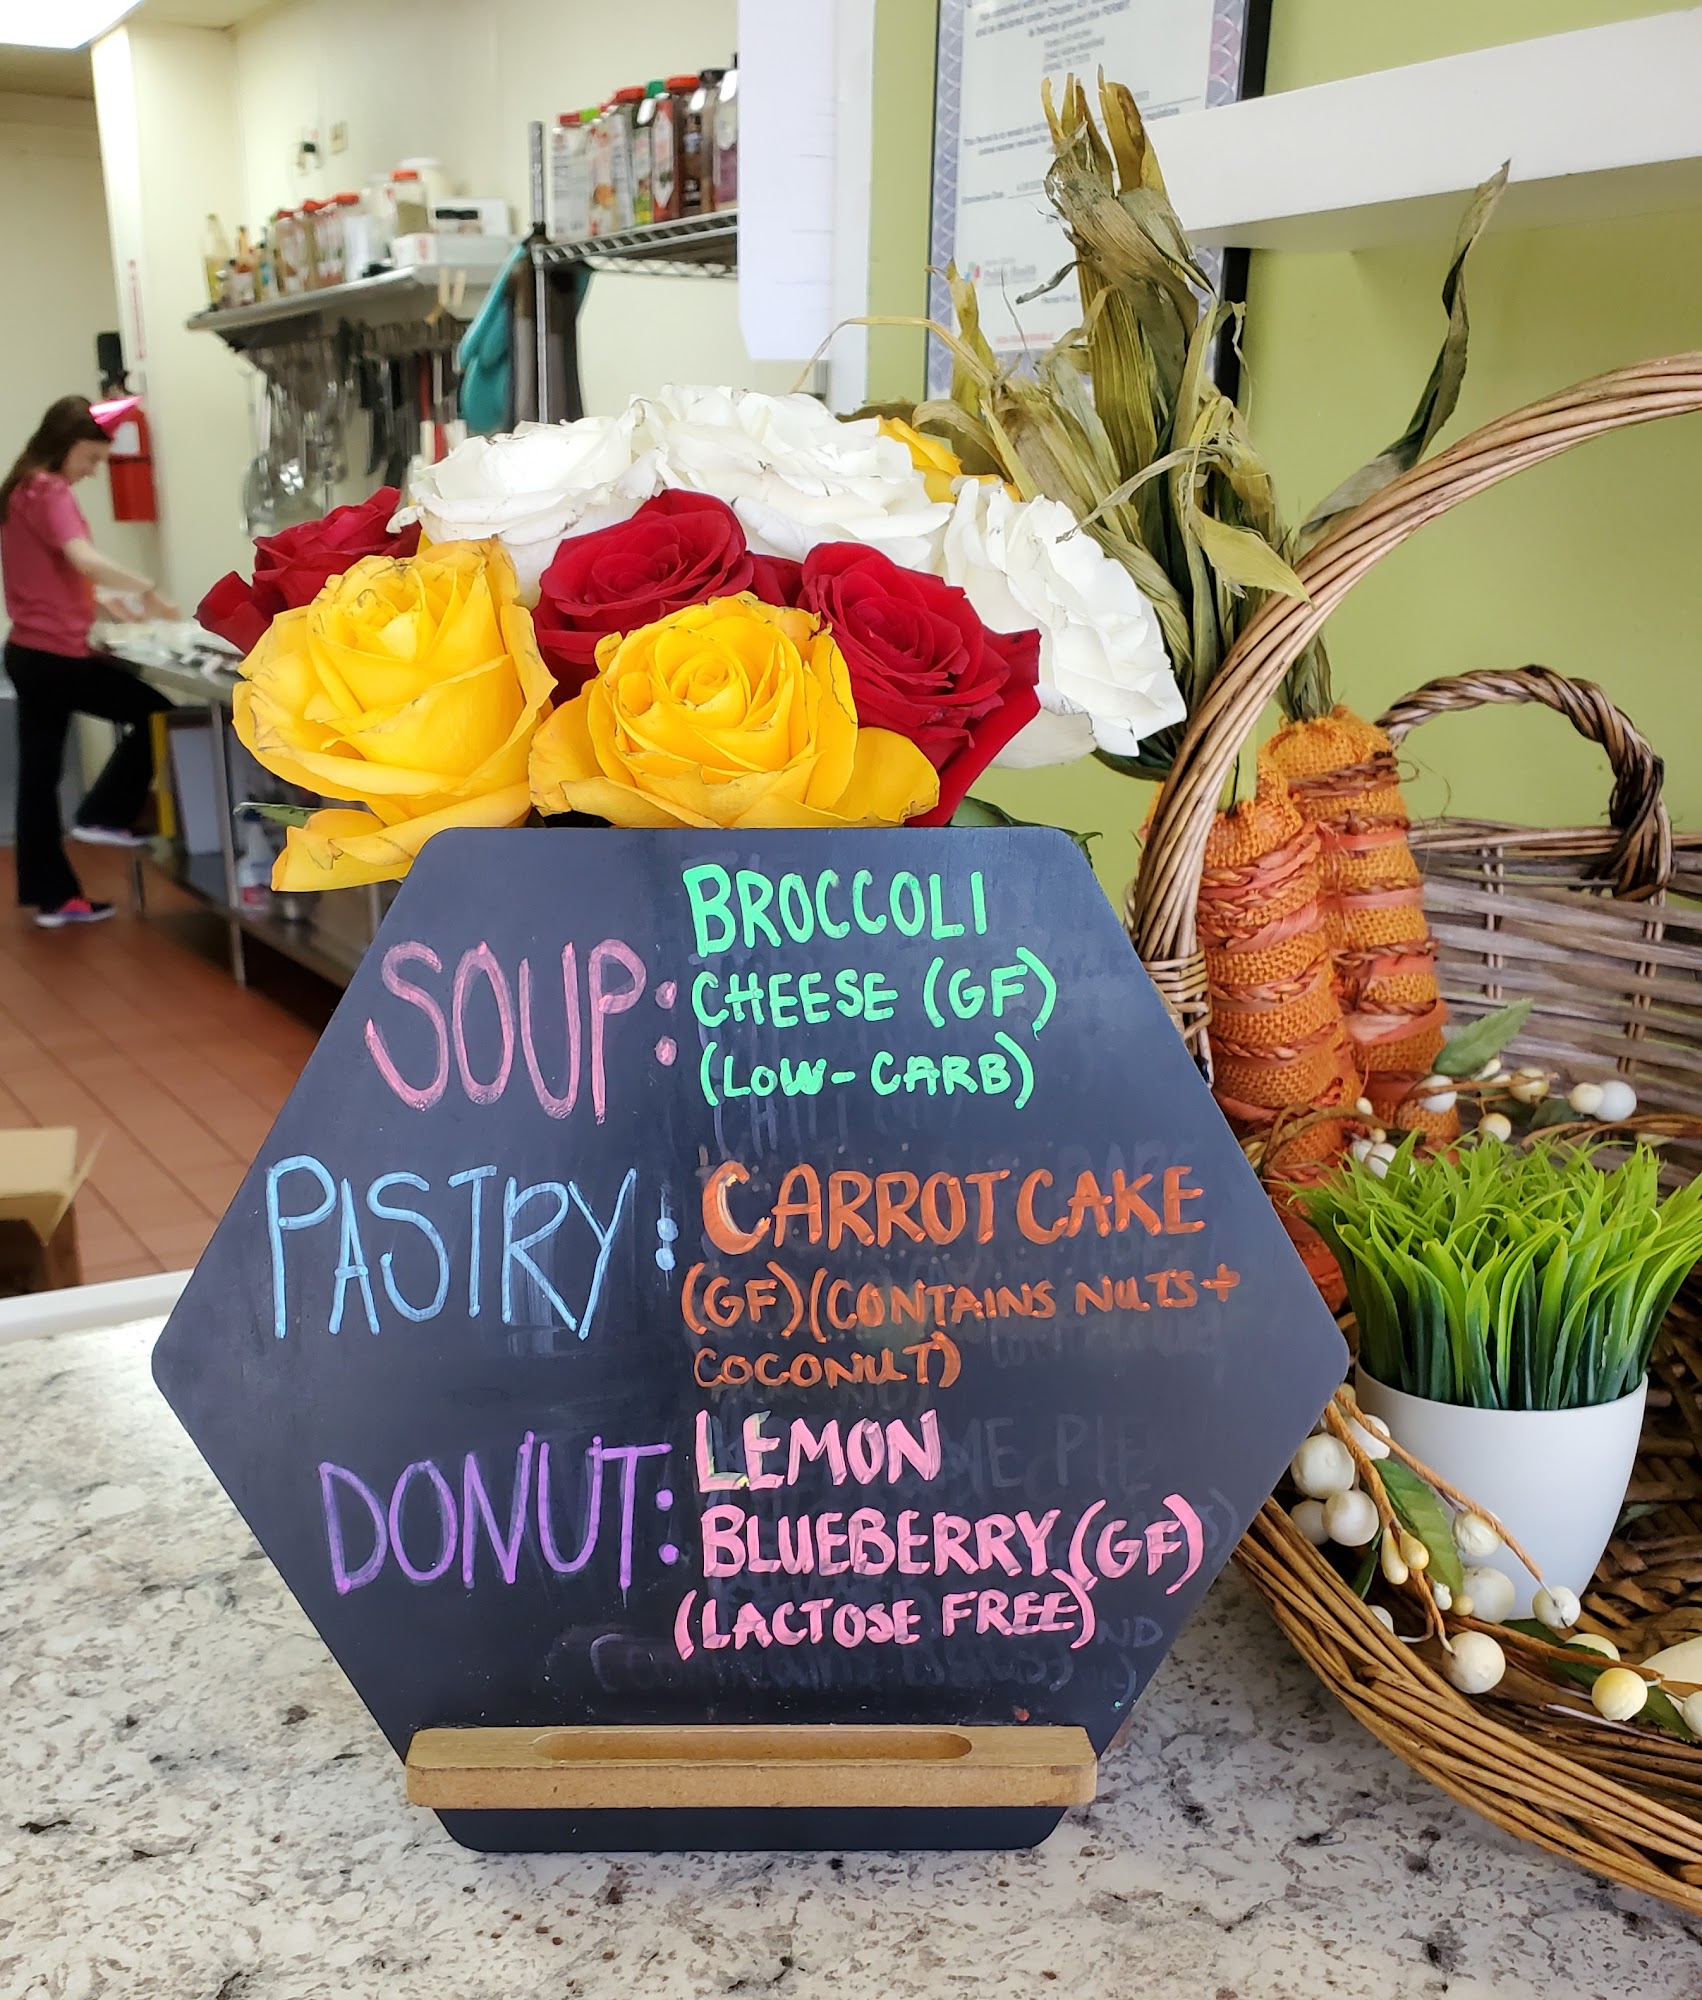 SOUP: BROCCOLI
CHEESE (GF)
(LOW-CARB)
PASTRY: CARROT CAKE
(GF)(CONTAINS NUTS +
COCONUT)
DONUT: LEMON
BLUEBERRY (GF)
(LACTOSE FREE)